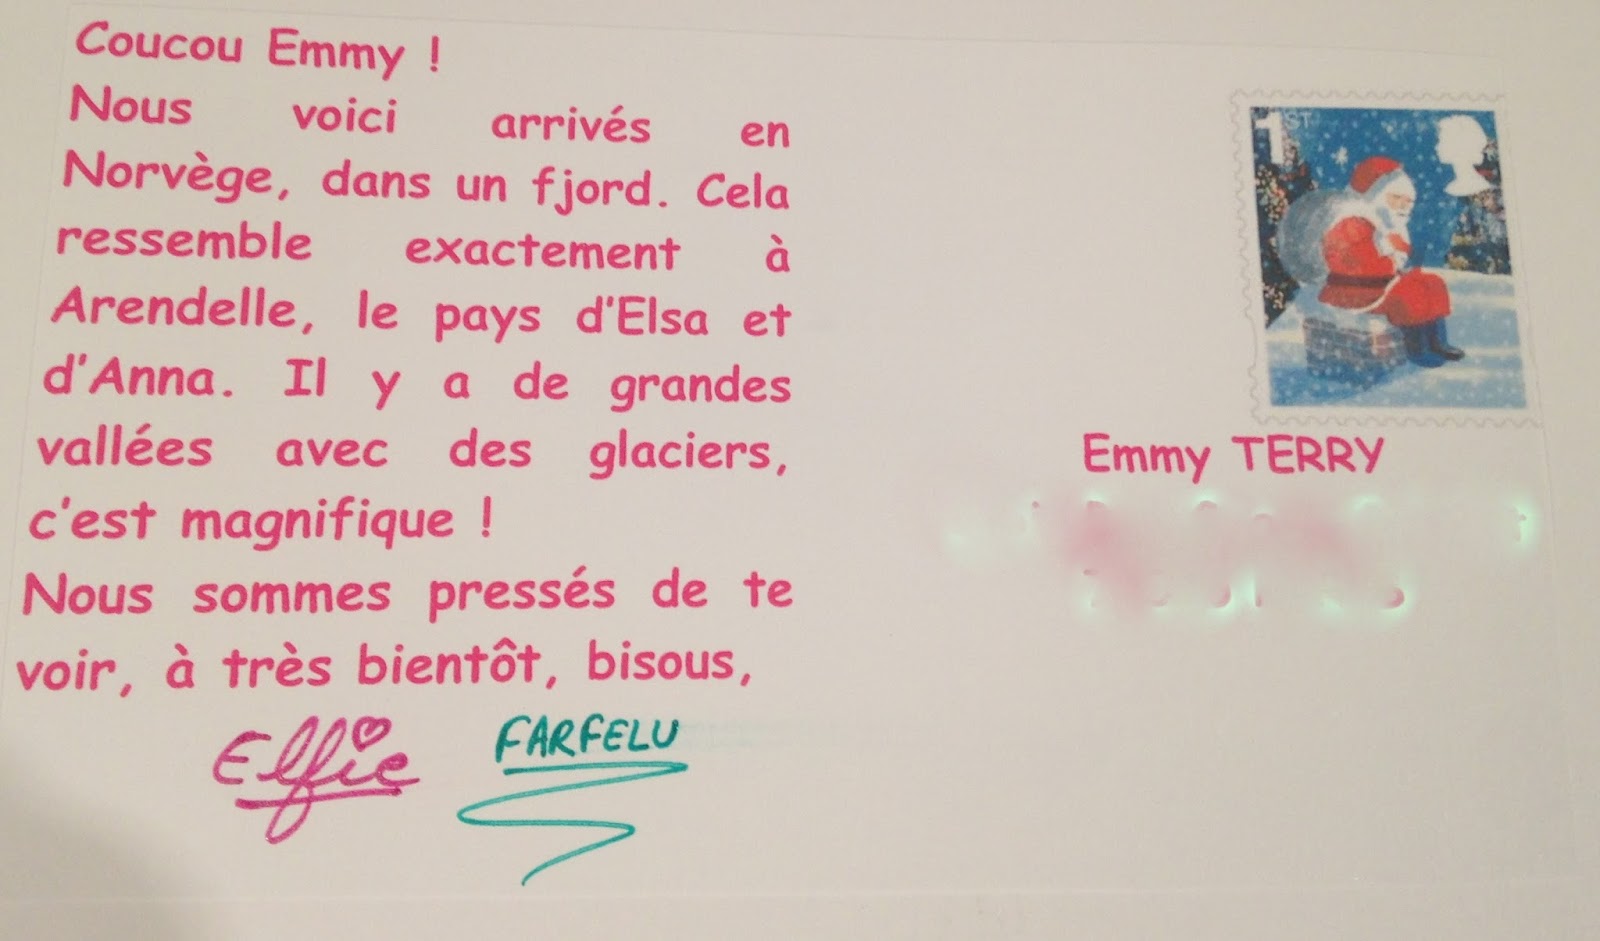 Coucou Emmy !
Nous voici arrivés en
Norvège, dans un fjord. Cela
ressemble exactement à
Arendelle, le pays d'Elsa et
d'Anna. Il y a de grandes
vallées avec des glaciers,
c'est magnifique !
Nous sommes pressés de te
voir, à très bientôt, bisous,
Elfie FARFELU
1ST
Emmy TERRY